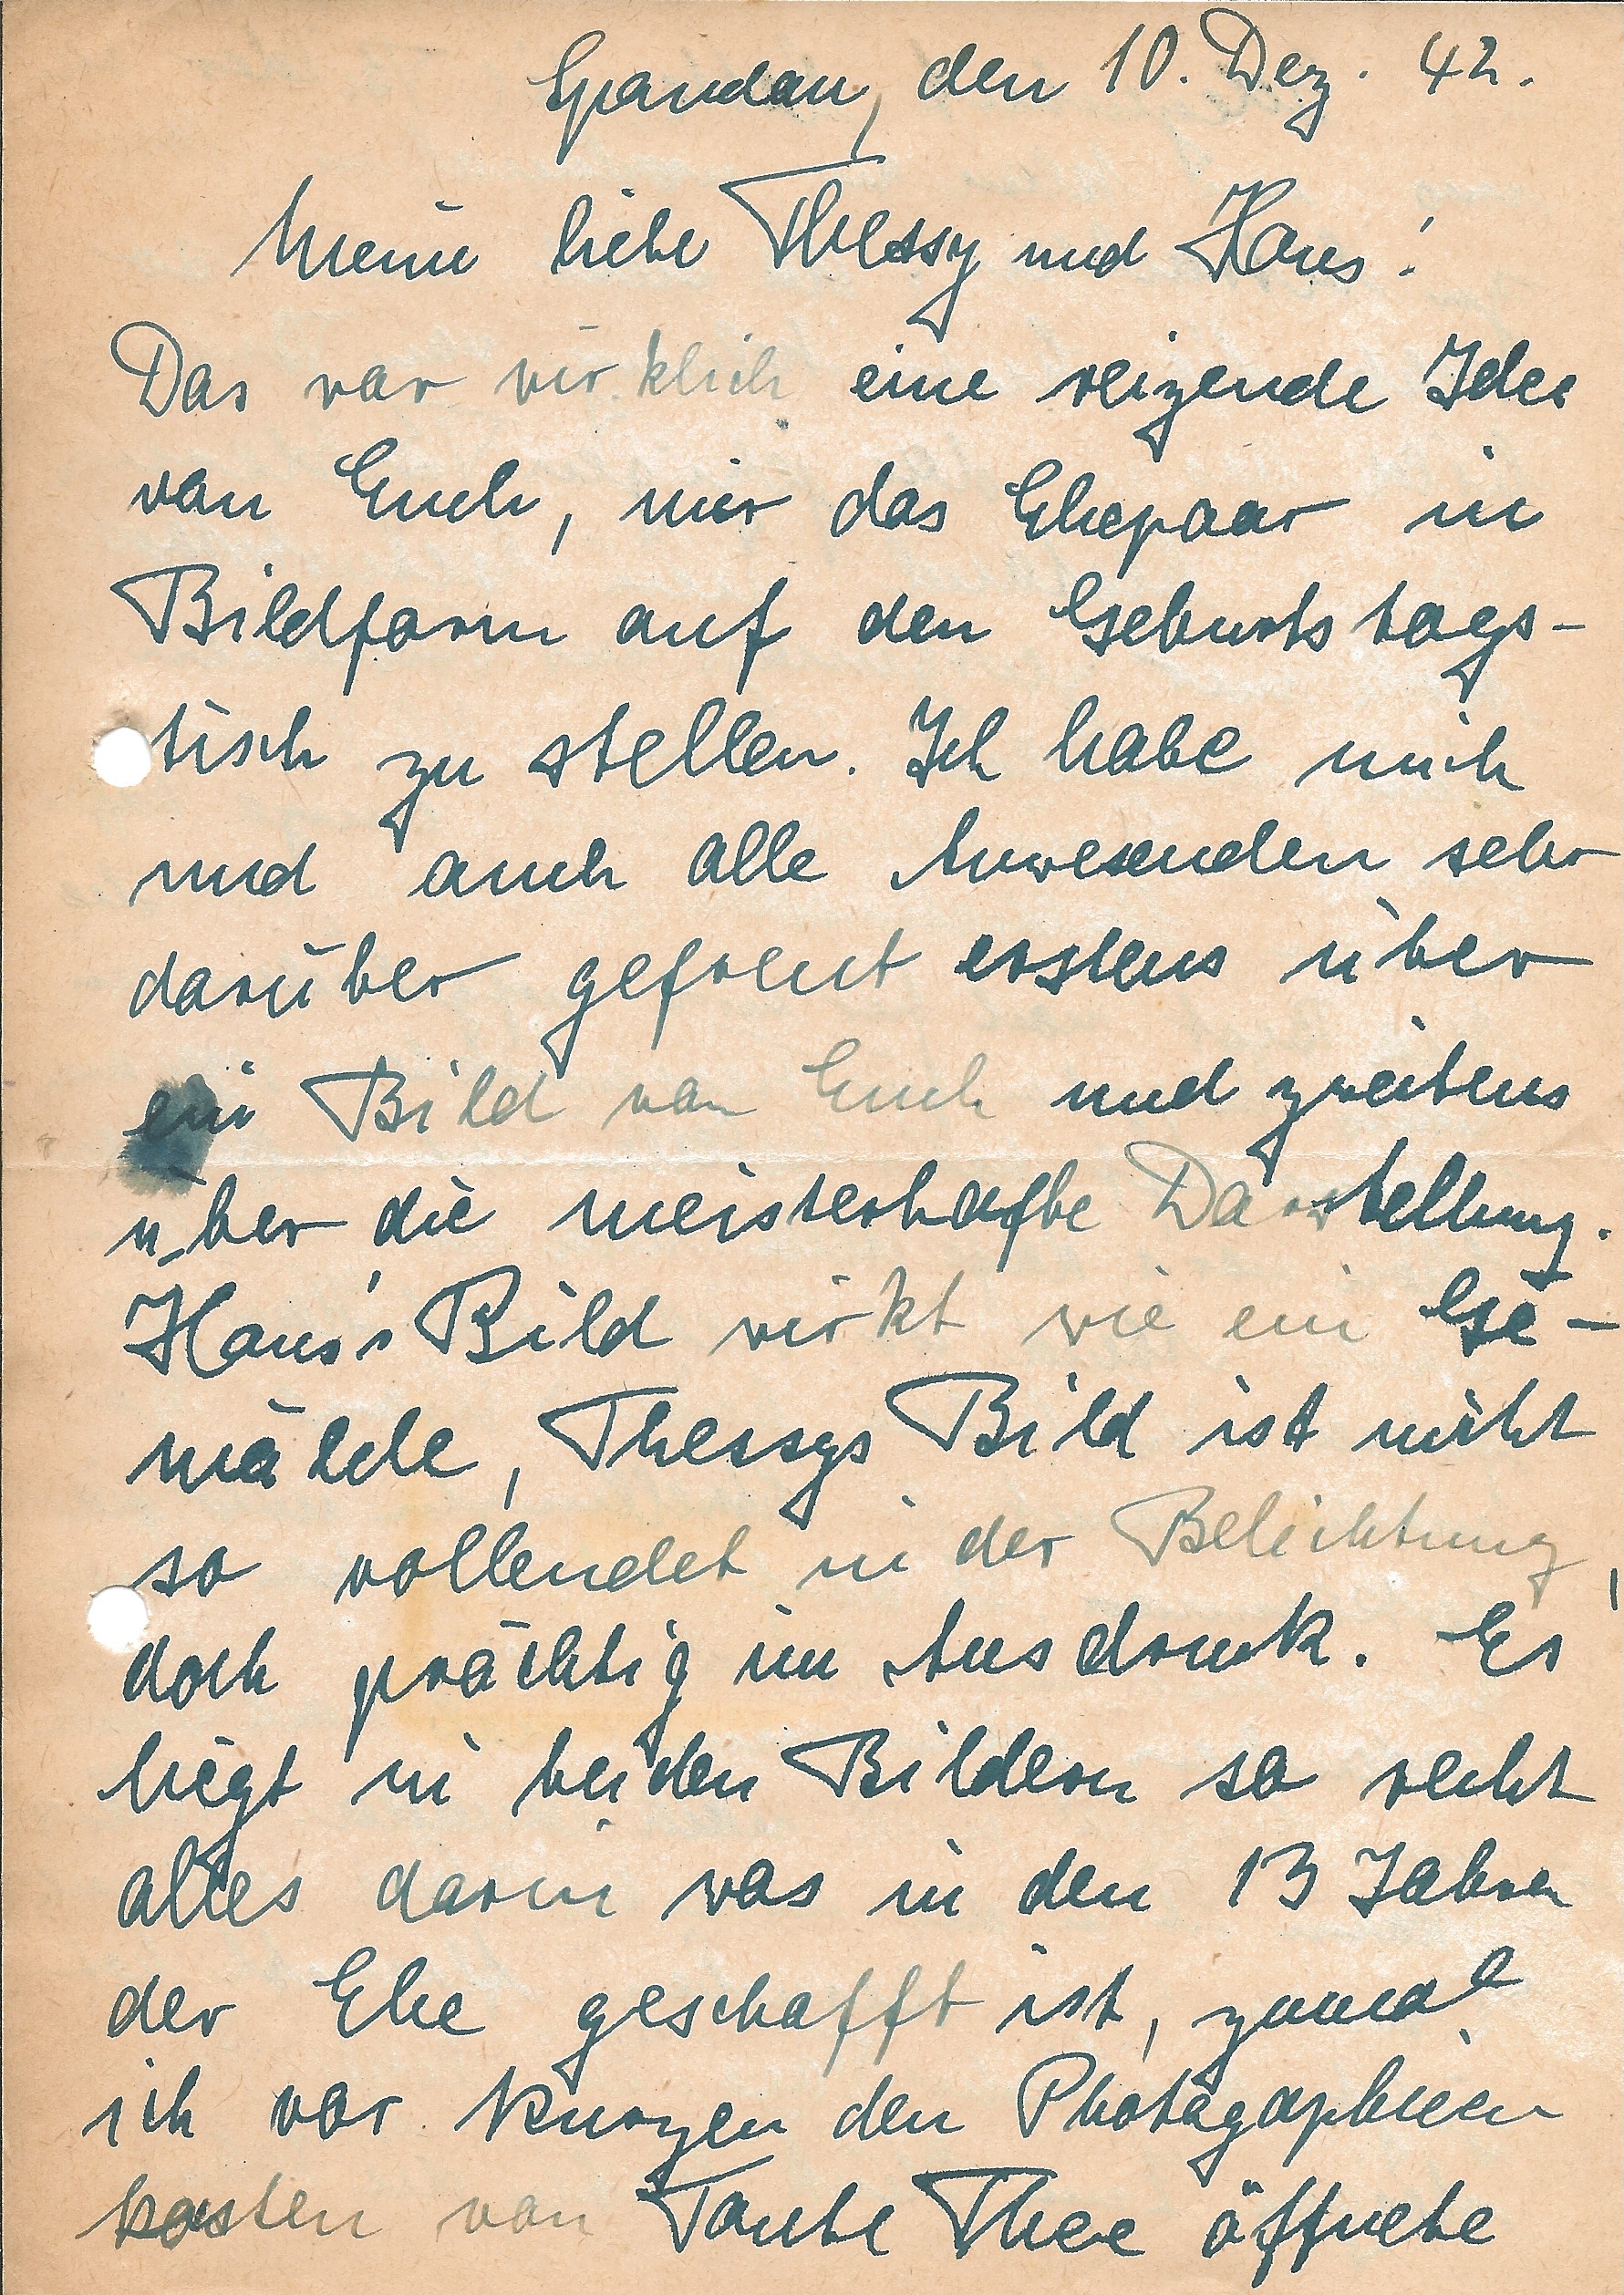 Spandau, den 10. Dez. 42.
Meine liebe Thessy und Hans!
Das war wirklich eine reizende Idee
von Euch, mir das Ehepaar in
Bildform auf den Geburtstags-
tisch zu stellen. Ich habe mich
und auch alle Anwesenden sehr
darüber gefreut erstens über
ein Bild von Euch und zweitens
über die meisterhafte Darstellung.
Hans's Bild wirkt wie ein Ge-
mälde, Thessys Bild ist nicht
so vollendet in der Belichtung,
doch prächtig im Ausdruck. Es
liegt in beiden Bildern so recht
alles darin was in den 13 Jahren
der Ehe geschafft ist, zumal
ich vor kurzen den Photogaphieen
kasten von Tante Thee öffnete